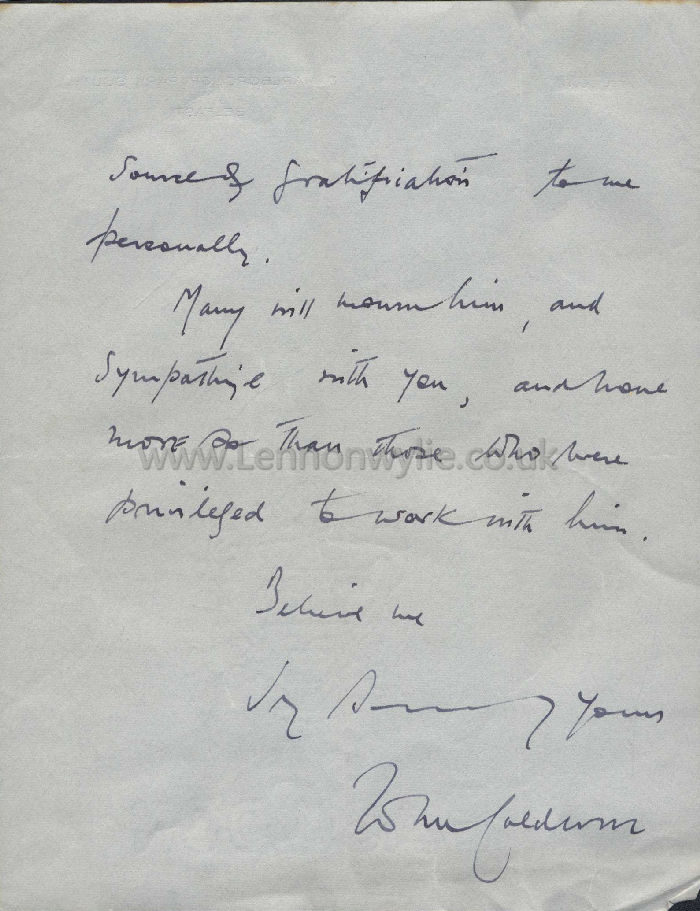 source of gratification to me
personally.
Many will mourn him, and
sympathise with you, and none
more so than those who were
www.Lennonwylie.co.uk
privileged to work with him.
Believe me
Very Sincerely Yours
John